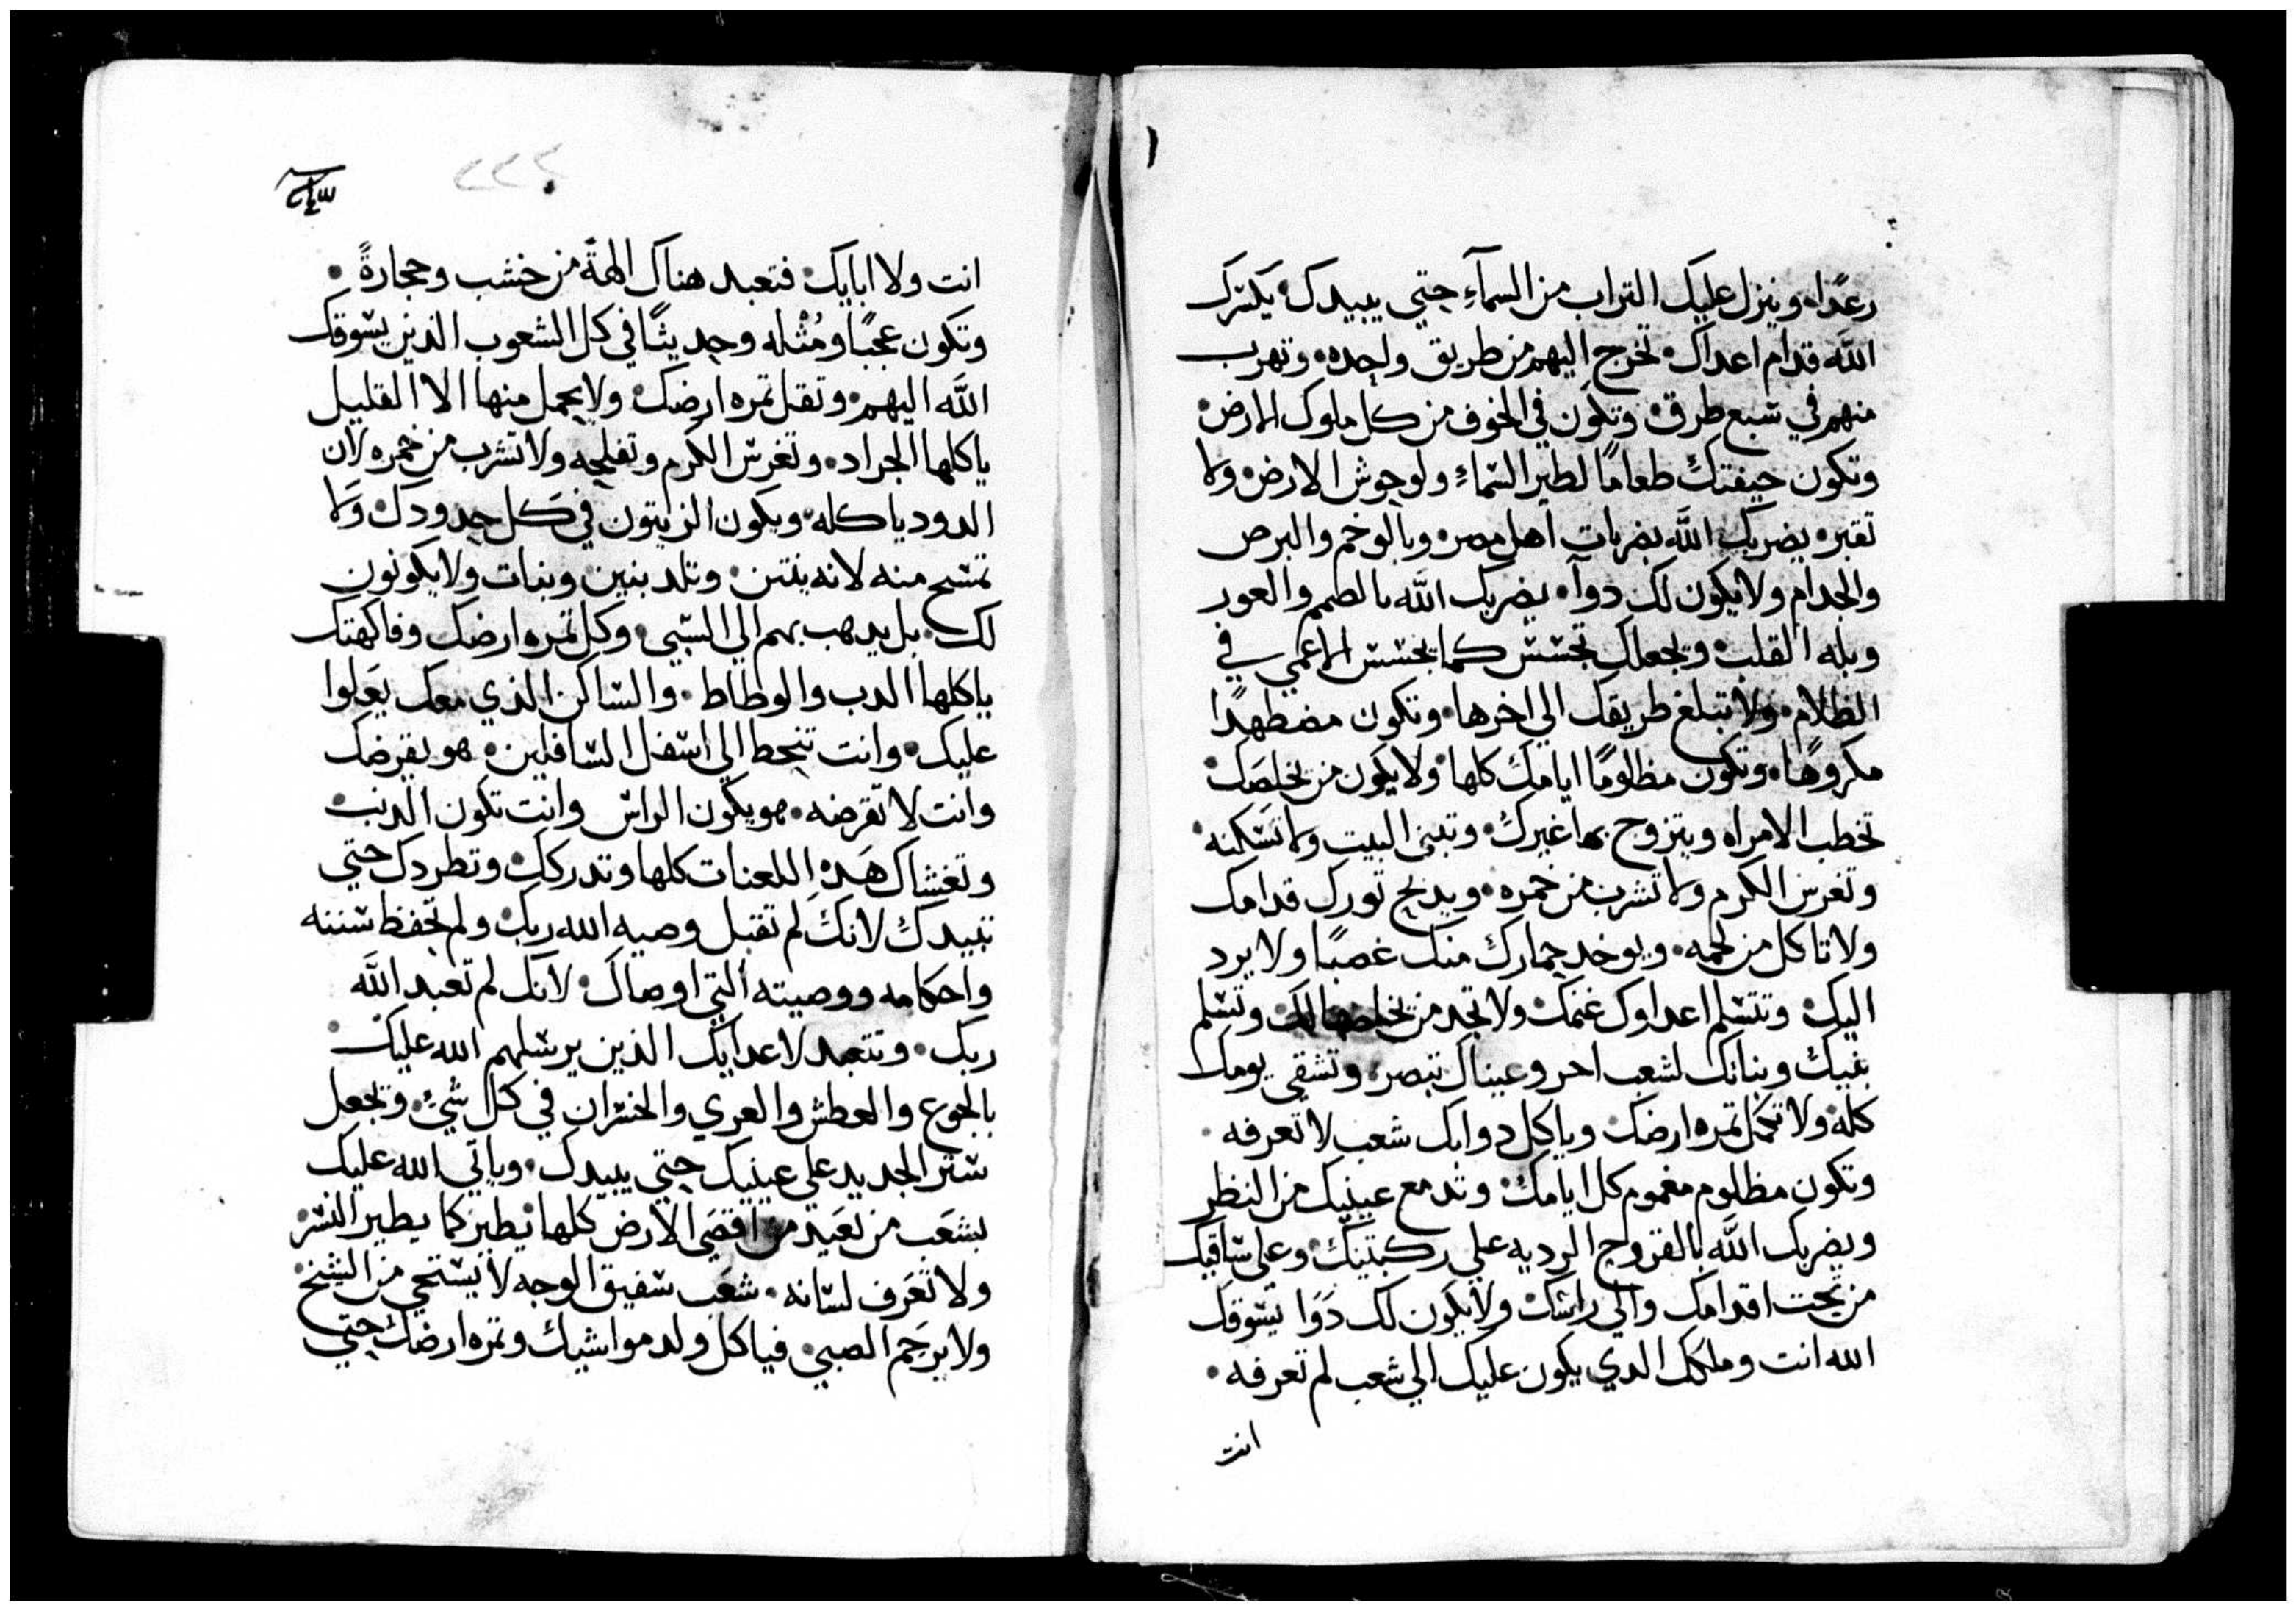 رعدًا. وينزل عليك التراب من السمآءِ حتي يبيدك. يكسرك
الله قدام اعداك. تخرج اليهم من طريق واحده. وتهرب
منهم في سبع طرق. وتكون في الخوف من كل ملوك الارض.
وتكون جيفتك طعامًا لطير السماءِ ولوحوش الارض. ولا
تقبر. يضربك الله بضربات اهل مصر. وبالوخم والبرص
والجدام ولا يكون لك دوآ. يضربك الله بالصمم والعور
وبله القلب. ويجعلك تجسس كما يجسس الاعمي في
الظلام. ولا تبلغ طريقك الي اخرها. وتكون مضطهدًا
مكروهًا. وتكون مظلومًا ايامك كلها. ولا يكون من يخلصك.
تخطب الامراه ويتزوج بها غيرك. وتبني البيت ولا تسكنه.
وتغرس الكرم ولا تشرب من خمره. ويدبح تورك قدامك
ولا تاكل من لحمه. ويوخد حمارك منك غصبًا ولا يرد
اليك. وتتسلم اعداوك غنمك. ولا تجد من يخلصها لك. وتسلم
بنيك وبناتك لشعب اخر وعيناك تبصر. وتشقي يومك
كله. ولا تكمل تمره ارضك. وياكل دوابك شعب لا تعرفه.
وتكون مظلوم مغموم كل ايامك. وتدمع عينيك من النظر
ويضربك الله بالقروح الرديه علي ركبتيك. وعلي ساقيك
من تحت اقدامك والي راسك. ولا يكون لك دوا يسوقك
الله انت وملكك الدي يكون عليك الي شعب لم تعرفه.
انت
انت ولا ابايك. فتعبد هناك الهةً من خشب وحجارةً.
وتكون عجبًا ومُثْله وحديثًا في كل الشعوب الذين يسوقك
الله اليهم. وتقل تمره ارضك. ولا يحمل منها الا القليل
ياكلها الجراد. وتغرس الكرم وتفلحه ولا تشرب من خمره لان
الدود ياكله. ويكون الزيتون في كل حدودك. ولا
تمسح منه لانه ينتن. وتلد بنين وبنات ولا يكونون
لك. بل يدهب بهم الي السبي. وكل تمره ارضك وفاكهتك
ياكلها الدب والوطاط. والساكن الذي معك يعلوا
عليك. وانت تنحط الي اسفل السافلين. هو يقرضك
وانت لا تقرضه. هو يكون الراس وانت تكون الدنب.
وتغشاك هَذهِ اللعنات كلها وتدركك. وتطردك حتي
تبيدك لانك لم تقبل وصيه الله ربك. ولم تحفظ سننه
واحكامه ووصيته التي اوصاك. لانك لم تعبد الله
ربك. وتتعبد لاعدايك الذين يرسلهم الله عليك.
بالجوع والعطش والعري والخسران في كل شيء. وتجعل
ستر الحديد علي عينيك حتي يبيدك. وياتي الله عليك
بشعب من بعيد من اقصي الارض كلها. يطير كما يطير النسر
ولا تعرف لسانه. شعب سفيق الوجه لا يستحي من الشيخ.
ولا يرحم الصبي. فياكل ولد مواشيك وتمره ارضك حتي